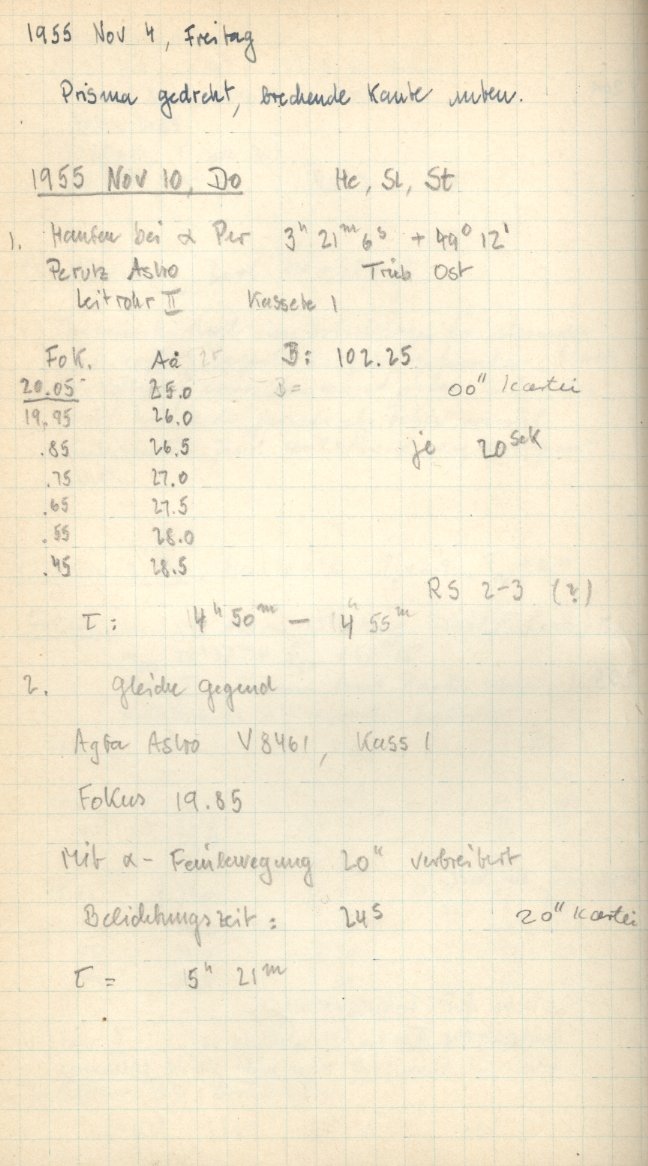 1955 Nov 4, Freitag
Prisma gedreht, brechende Kante unten.
1955 Nov 10, Do He, Sl, St
1. Haufen bei α Per 3h 21m 6s + 49° 12'
Perutz Astro Trüb Ost
Leitrohr II Kassette 1
Fok. B: 102.25
20.05 25.0 B= 00" Kartei
19.95 26.0
.85 26.5 je 20 Sek
.75 27.0
.65 27.5
.55 28.0
.45 28.5
RS 2-3 (?)
τ: 4h 50m – 4h 55m
2. Gleiche Gegend
Agfa Astro V 8461, Kass 1
Fokus 19.85
Mit α - Feinbewegung 20" verbreitert
Belichtungszeit: 24s 20" Kartei
τ = 5h 21m